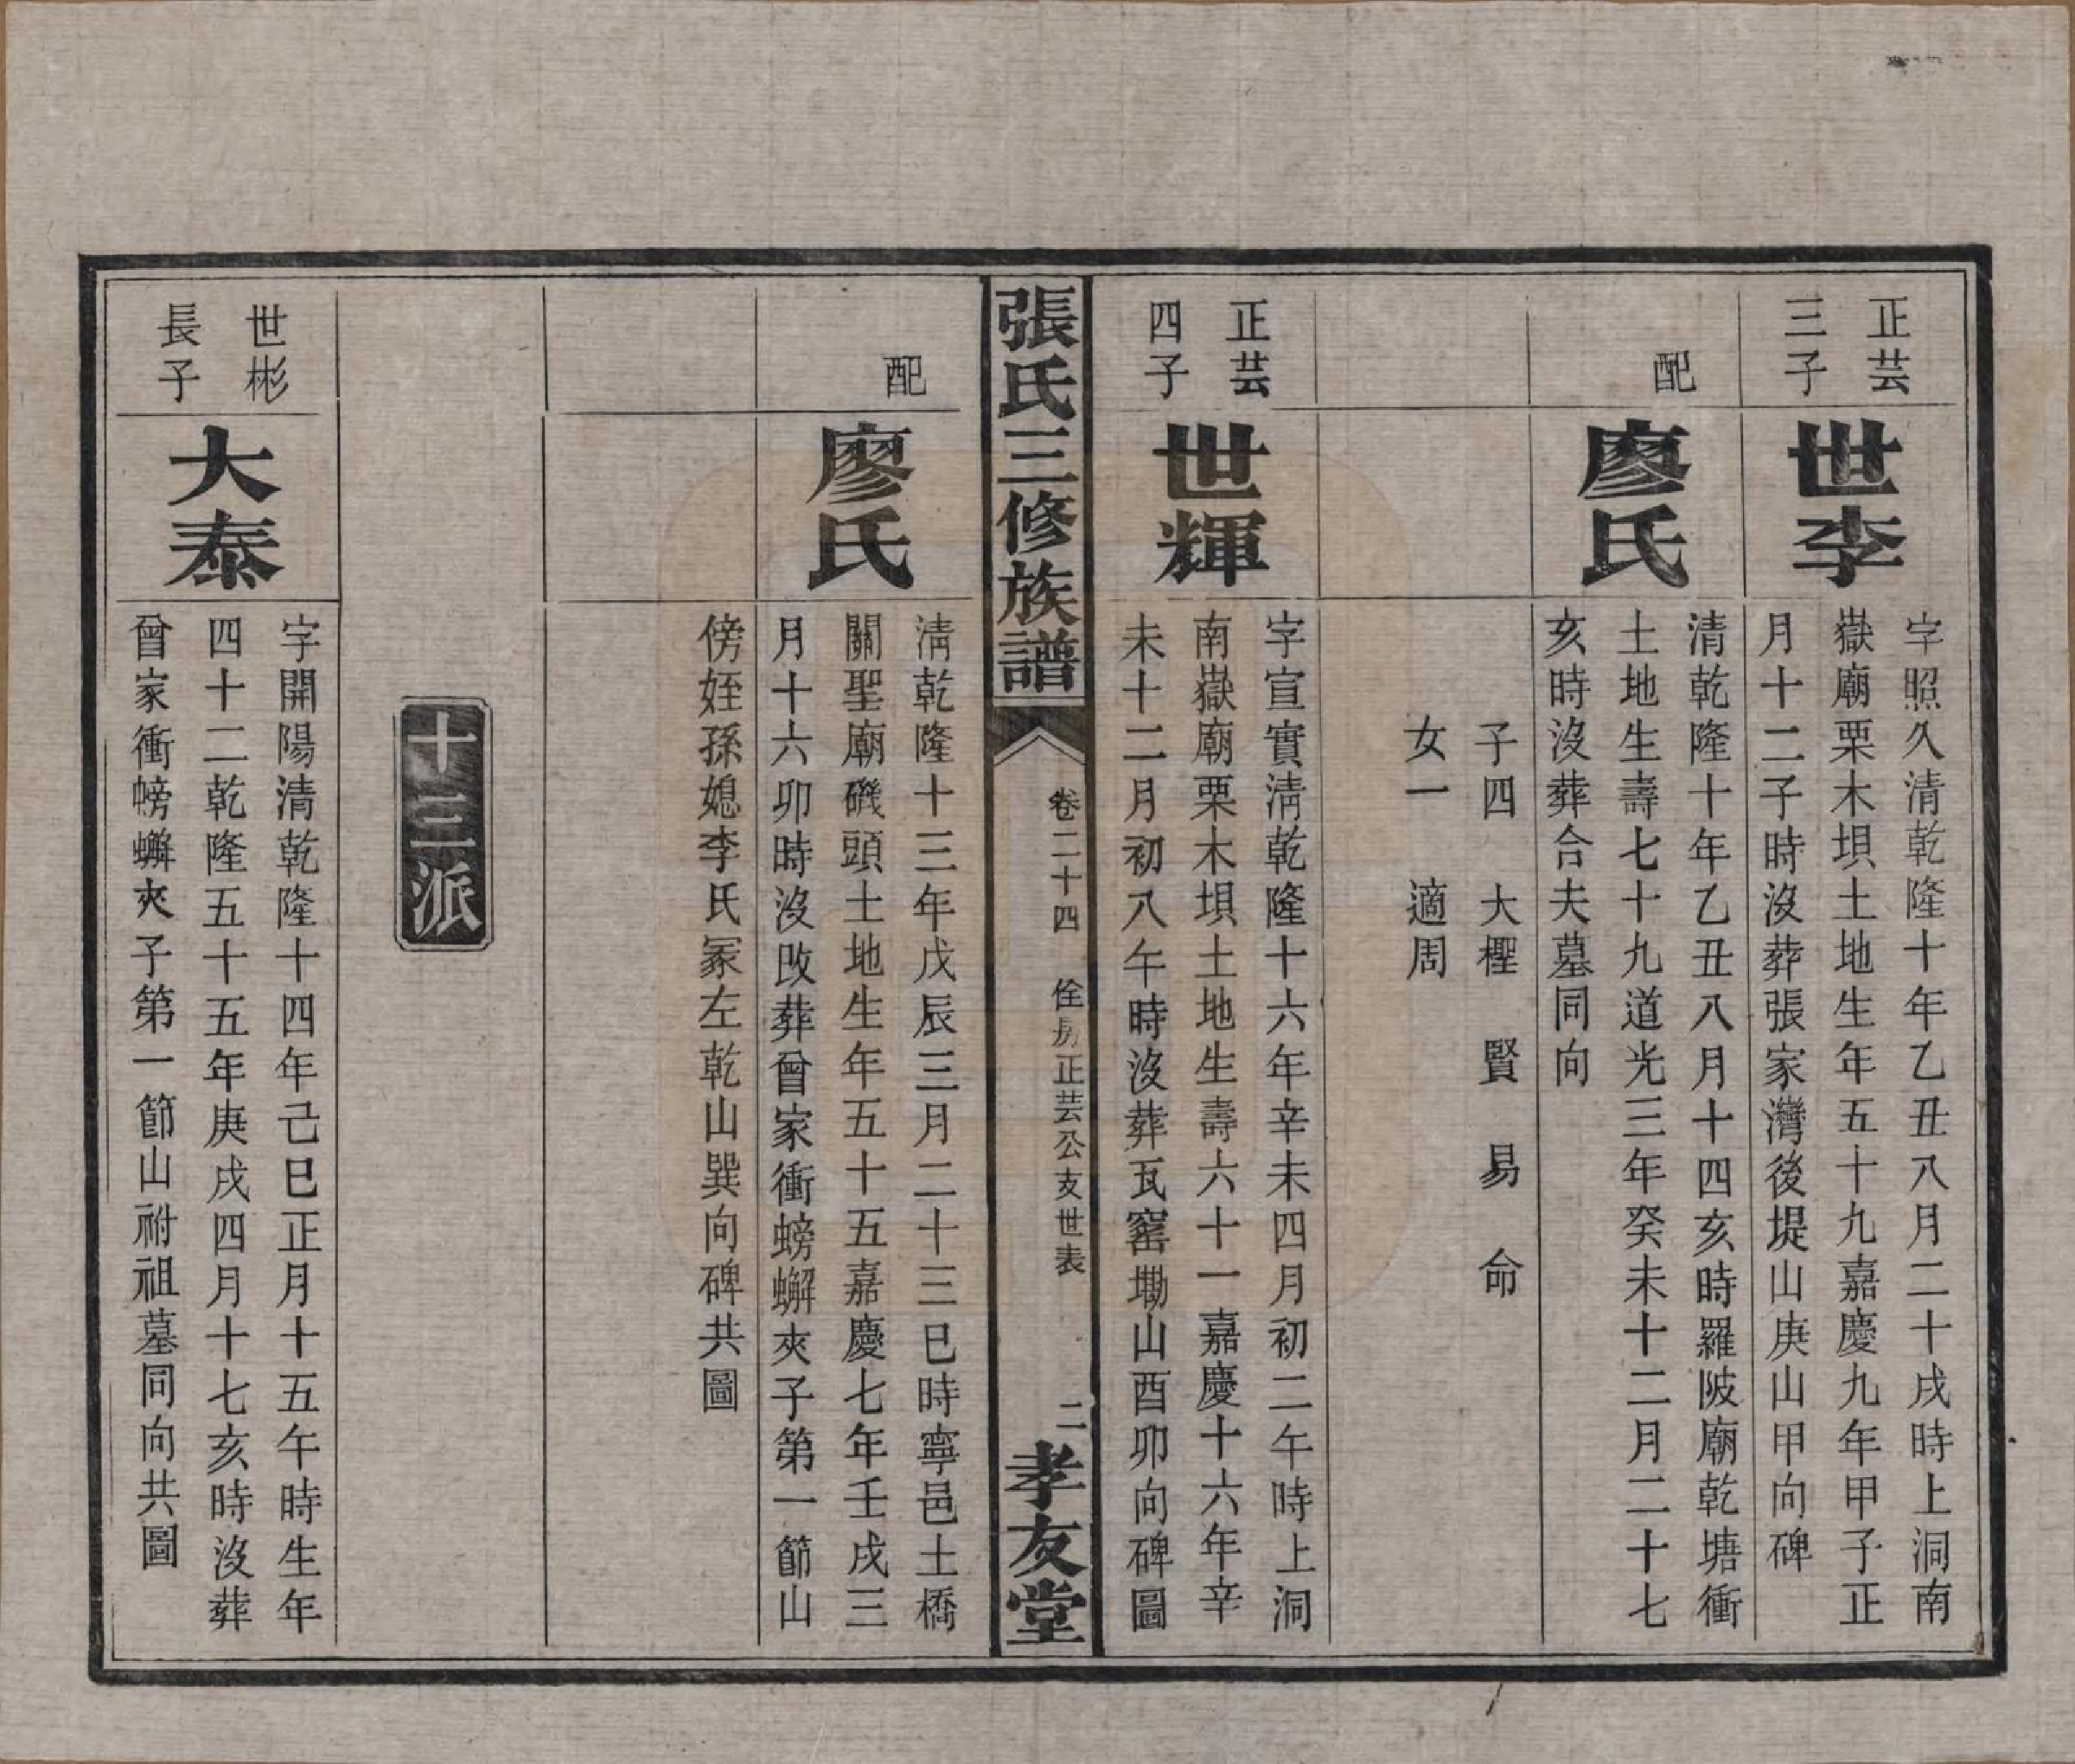 正芸
三子
世李
字照久清乾隆十年乙丑八月二十戌時上洞南
嶽廟栗木垻土地生年五十九嘉慶九年甲子正
月十二子時沒葬張家灣後堤山庚山甲向碑
配
廖氏
清乾隆十年乙丑八月十四亥時羅陂廟乾塘衝
土地生壽七十九道光三年癸未十二月二十七
亥時沒葬合夫墓同向
子四 大檉 賢 易 命
女一 適周
正芸
四子
世輝
字宣實清乾隆十六年辛未四月初二午時上洞
南嶽廟栗木垻土地生壽六十一嘉慶十六年辛
未十二月初八午時沒葬瓦窰墈山酉卯向碑圖
張氏三修族譜
卷二十四 佺房正芸公支世表 二
孝友堂
配
廖氏
清乾隆十三年戊辰三月二十三巳時寧邑土橋
關聖廟磯頭土地生年五十五嘉慶七年壬戌三
月十六卯時沒改葬曾家衝螃蠏夾子第一節山
傍姪孫媳李氏冢左乾山巽向碑共圖
十三派
世彬
長子
大泰
字開陽清乾隆十四年己巳正月十五午時生年
四十二乾隆五十五年庚戌四月十七亥時沒葬
曾家衝螃蠏夾子第一節山祔祖墓同向共圖